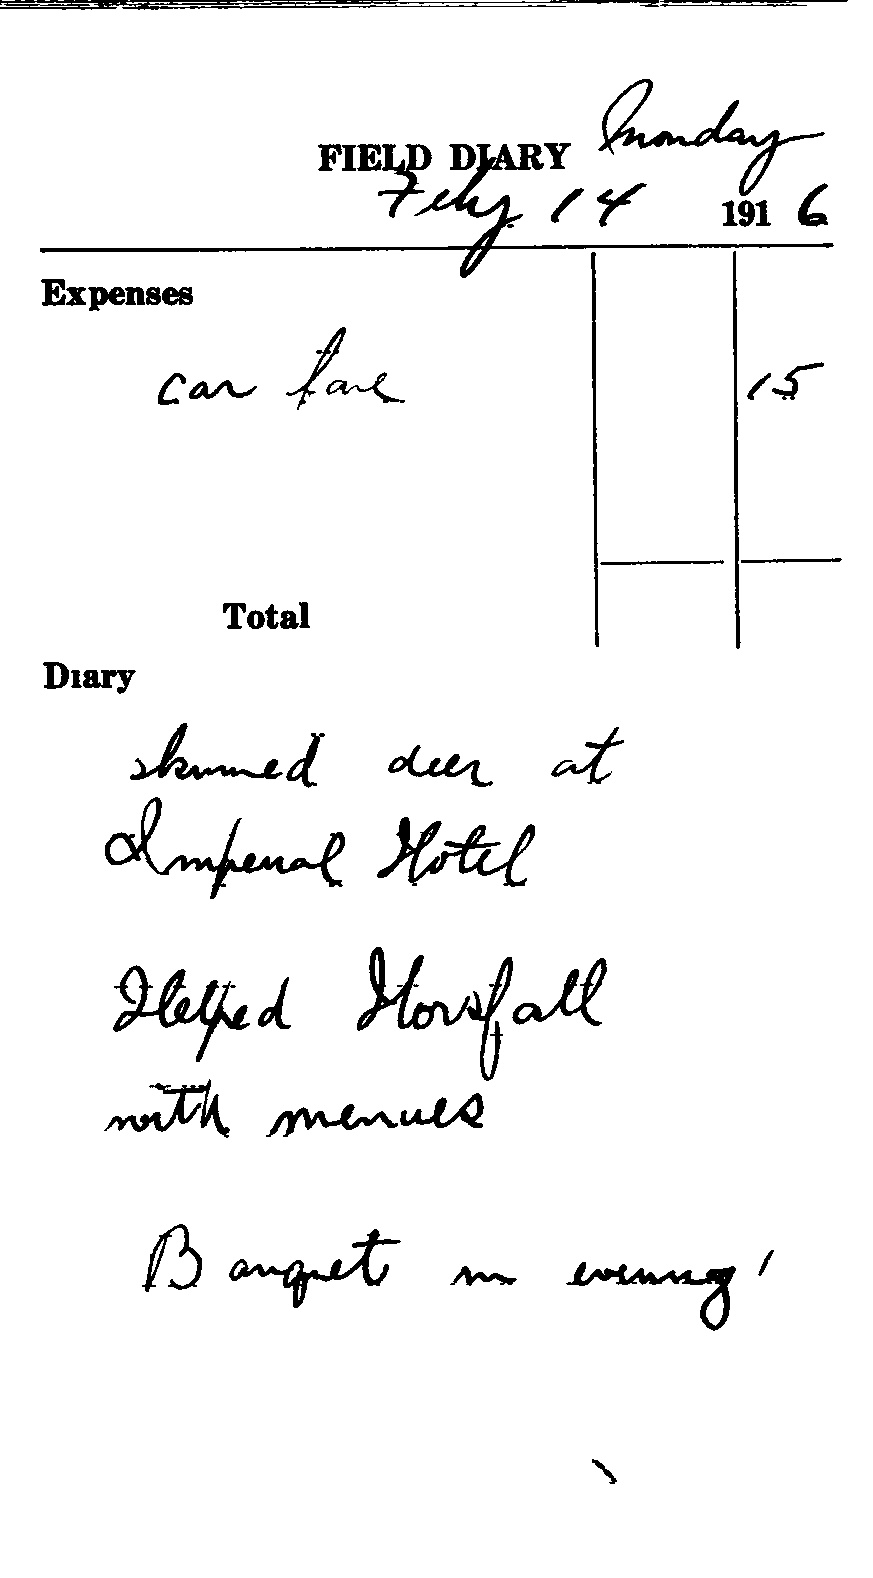 FIELD DIARY Monday
Feby 14 1916
Expenses
car fare 15
Total
Diary
skinned deer at
Imperial Hotel
Helped Horsfall
with menues
Banquet in evening